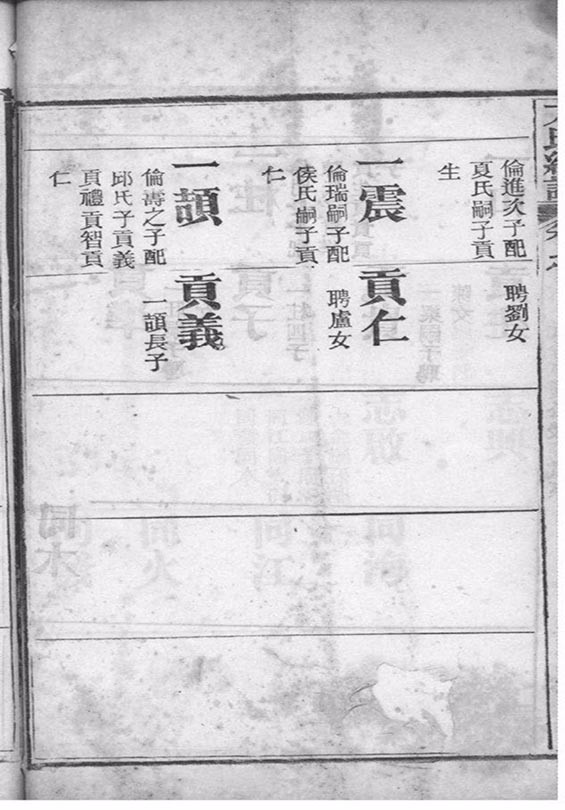 倫進次子配
夏氏嗣子貢
生
一震
倫瑞嗣子配
侯氏嗣子貢
仁
一頡
倫壽之子配
邱氏子貢義
貢禮貢智貢
仁
聘劉女
貢仁
聘盧女
貢義
一頡長子